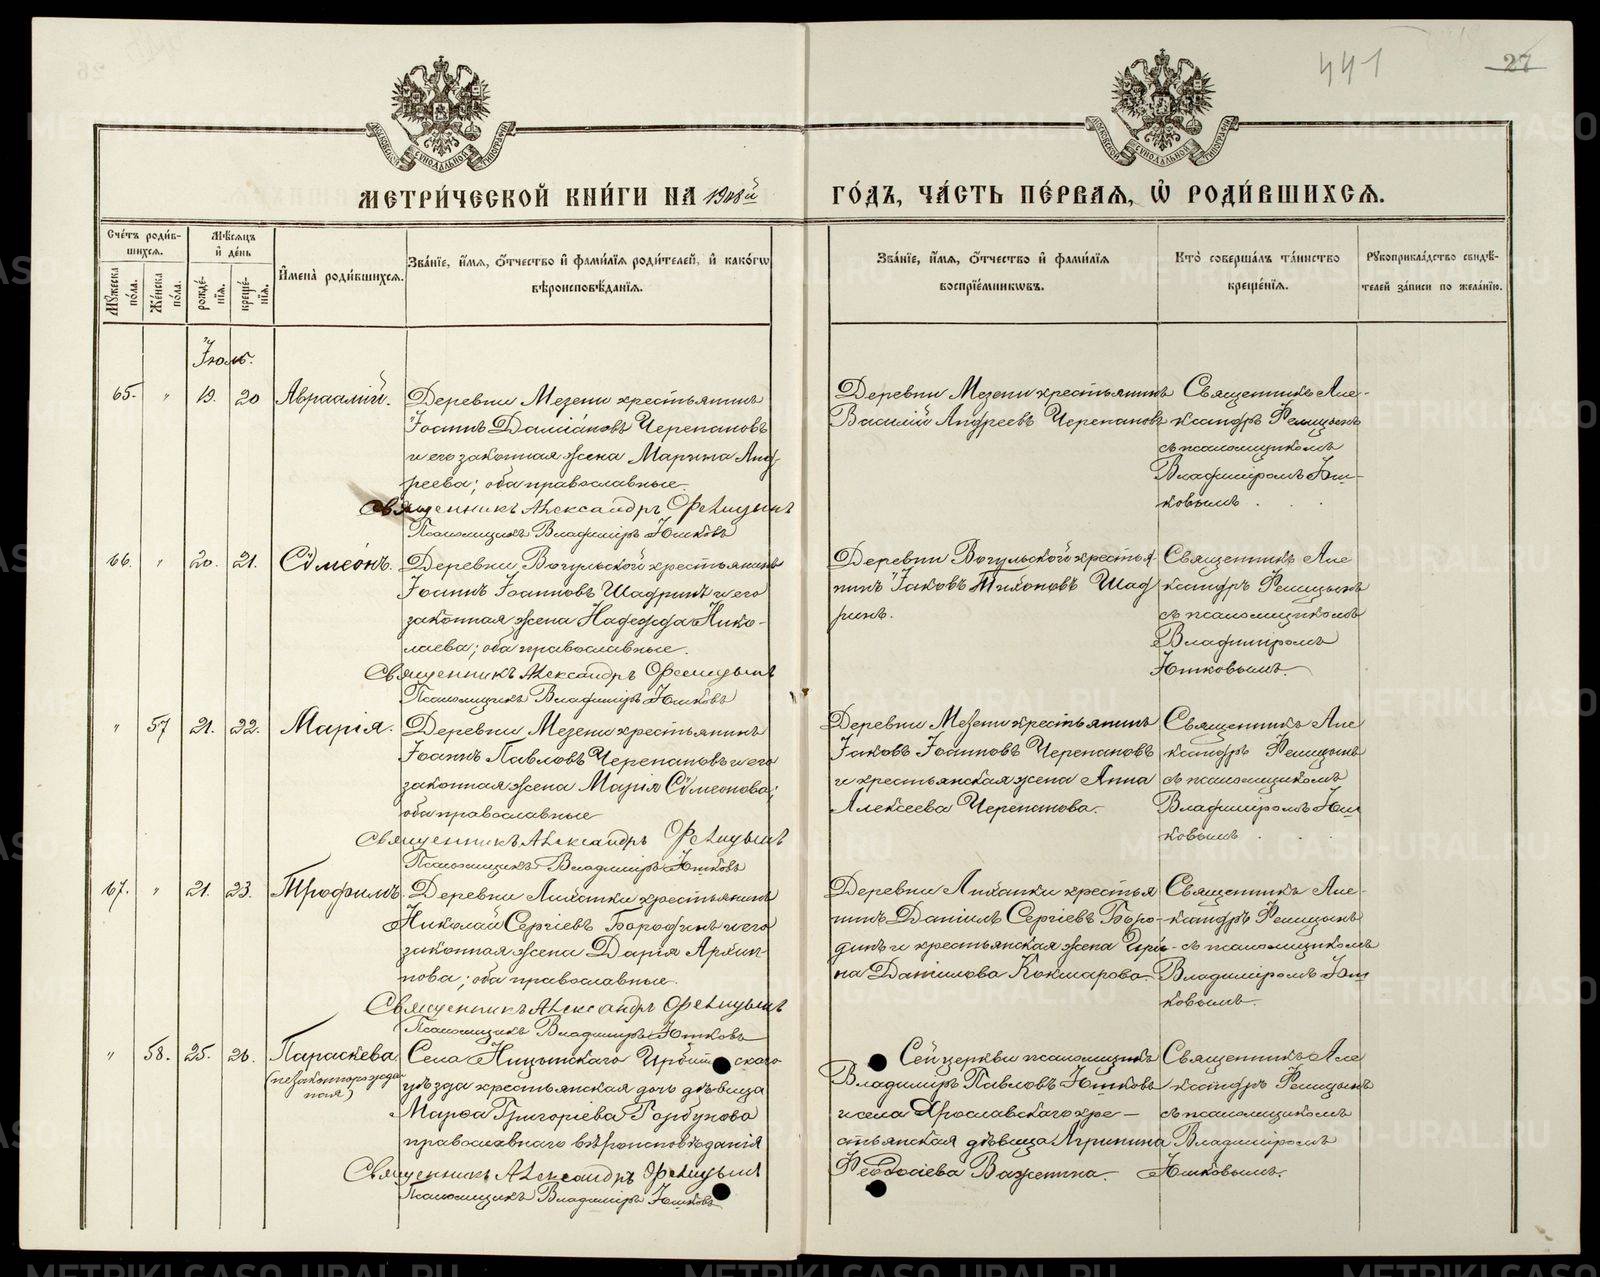 441
27
МОСКОВСКОЙ СУНОДАЛЬНОЙ ТИПОГРАФІИ
МОСКОВСКОЙ СУНОДАЛЬНОЙ ТИПОГРАФІИ
МЕТРИ́ЧЕСКОЙ КНИ́ГИ НА 1908й
ГО́ДЪ, ЧА́СТЬ ПЕ́РВАѦ, Ѡ҆ РОДИ́ВШИХСѦ.
Сче́тъ роди́в-
шихсѧ.
Мꙋ́жеска по́ла.
Же́нска по́ла.
Мѣ́сѧцъ
и҆ де́нь
рожде́-
нїѧ.
креще́-
нїѧ.
И҆мена̀ роди́вшихсѧ.
Зва́нїе, и҆́мѧ, ѻ҆́тчество и҆ фами́лїѧ роди́телей, и҆ како́гѡ
вѣроисповѣ́данїѧ.
Зва́нїе, и҆́мѧ, ѻ҆́тчество и҆ фами́лїѧ
воспрїе́мникѡвъ.
Кто̀ соверша́лъ та́инство
креще́нїѧ.
Рꙋкоприкла́дство свидѣ́-
телей за́писи по жела́нїю.
Іюль.
65. " 19. 20 Авраамій.
Деревни Мезени крестьянинъ
Іоаннъ Даміановъ Черепановъ
и его законная жена Марина Анд-
реева; оба православные.
Священникъ Александръ Фелицынъ
Псаломщикъ Владиміръ Юшковъ
Деревни Мезени крестьянинъ
Василій Андреевъ Черепановъ
Священникъ Але-
ксандръ Фелицынъ
съ псаломщикомъ
Владиміромъ Юш-
ковымъ.
66. " 20. 21. Сѵмеонъ.
Деревни Вогульской крестьянинъ
Іоаннъ Іоанновъ Шадринъ и его
законная жена Надежда Нико-
лаева; оба православные.
Священникъ Александръ Фелицынъ
Псаломщикъ Владиміръ Юшковъ
Деревни Вогульской крестья-
нинъ Іаковъ Тихоновъ Шад
ринъ.
Священникъ Але
ксандръ Фелицынъ
съ псаломщикомъ
Владиміромъ
Юшковымъ.
" 57 21. 22. Марія.
Деревни Мезени крестьянинъ
Іоаннъ Павловъ Черепановъ и его
законная жена Марія Сѵмеонова;
оба православные
Священникъ Александръ Фелицынъ
Псаломщикъ Владиміръ Юшковъ
Деревни Мезени крестьянинъ
Іаковъ Іоанновъ Черепановъ
и крестьянская жена Анна
Алексеева Черепанова.
Священникъ Але
ксандръ Фелицынъ
съ псаломщикомъ
Владиміромъ Юш
ковымъ
67. " 21. 23. Трофимъ.
Деревни Лиханки крестьянинъ
Николай Сергіевъ Бородинъ и его
законная жена Дарія Архип-
пова; оба православные.
Священникъ Александръ Фелицынъ
Псаломщикъ Владиміръ Юшковъ
Деревни Лиханки крестья
нинъ Даніилъ Сергіевъ Боро-
динъ и крестьянская жена Ири-
на Даніилова Кокшарова.
Священникъ Але-
ксандръ Фелицынъ
съ псаломщикомъ
Владиміромъ Юш
ковымъ.
" 58. 25. 26. Параскева
(незаконнорожден
ная)
Села Ницынскаго Ирбитскаго
уѣзда крестьянская дочь дѣвица
Марѳа Григоріева Горбунова
православнаго вѣроисповѣданія
Священникъ Александръ Фелицынъ
Псаломщикъ Владиміръ Юшковъ
Сей церкви псаломщикъ
Владиміръ Павловъ Юшковъ
и села Ярославскаго кре-
стьянская дѣвица Агриппина
Ѳеодосіева Важенина.
Священникъ Але
ксандръ Фелицынъ
съ псаломщикомъ
Владиміромъ
Юшковымъ.
METRIKI.GASO-URAL.RU